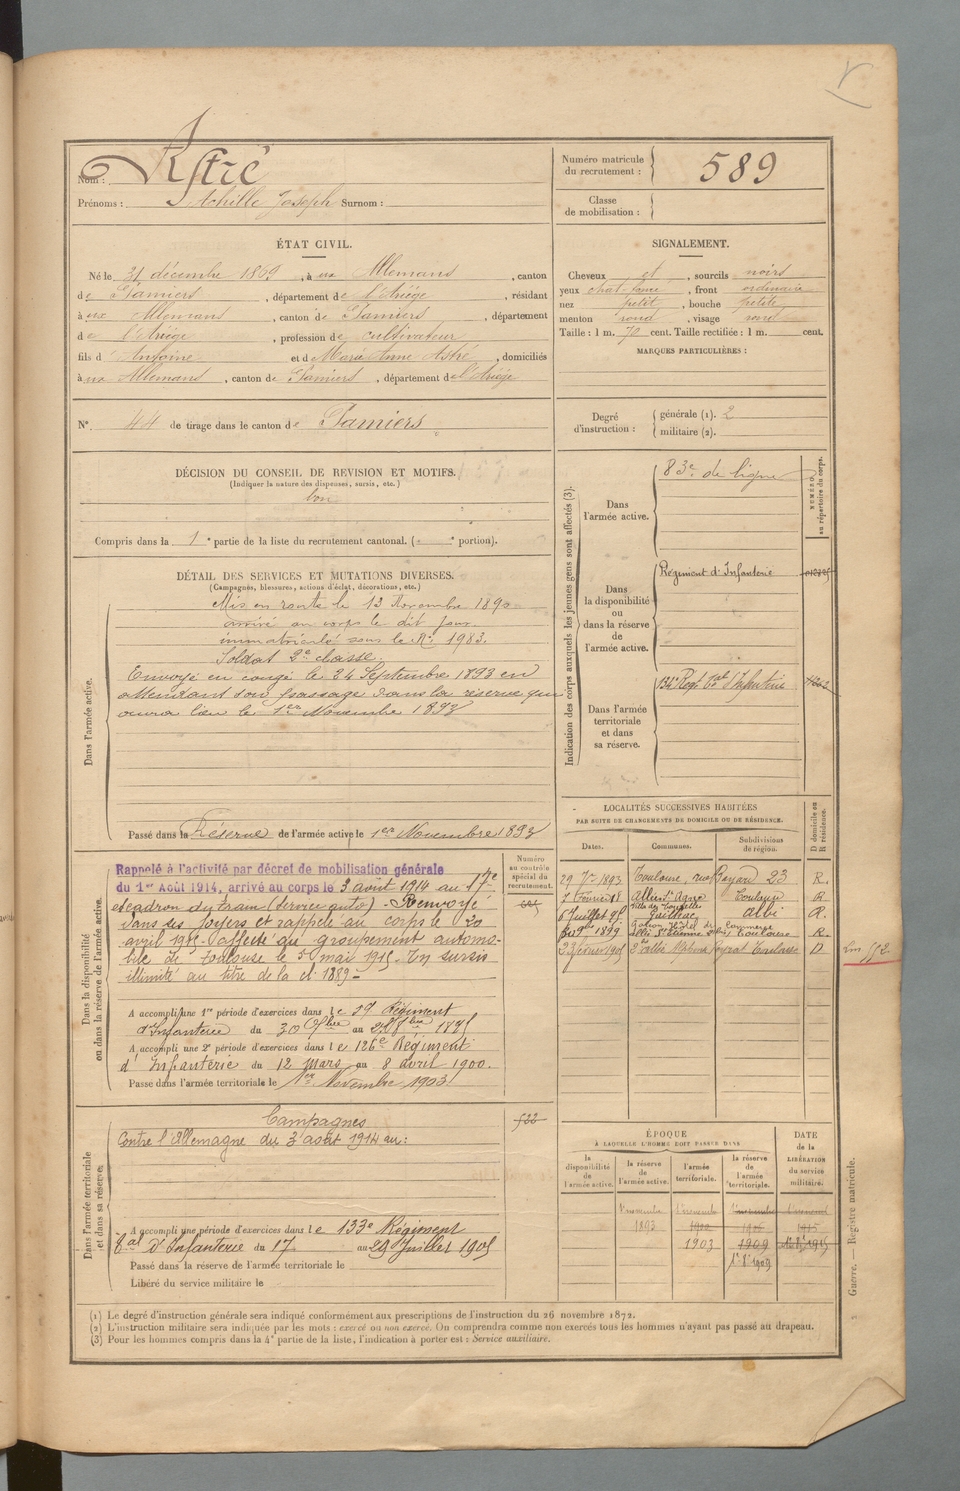 Nom : Astré
Prénoms : Achille Joseph Surnom :
Numéro matricule du recrutement : 589
Classe de mobilisation :
ÉTAT CIVIL.
Né le 31 décembre 1869, à ux Allemans, canton
de Pamiers, département de l'Ariége, résidant
à ux Allemans, canton de Pamiers, département
de l'Ariége, profession de cultivateur
fils d'Antoine et de Marie Anne Astré, domiciliés
à ux Allemans, canton de Pamiers, département de l'Ariége
SIGNALEMENT.
Cheveux et, sourcils noirs
yeux chat. fonce, front ordinaire
nez petit, bouche petite
menton rond, visage rond
Taille : 1 m. 70 cent. Taille rectifiée : 1 m. cent.
MARQUES PARTICULIÈRES :
N° 44 de tirage dans le canton de Pamiers
Degré d'instruction : générale (1). 2
militaire (2).
DÉCISION DU CONSEIL DE REVISION ET MOTIFS.
(Indiquer la nature des dispenses, sursis, etc.)
bon
Compris dans la 1e partie de la liste du recrutement cantonal. ( e portion).
DÉTAIL DES SERVICES ET MUTATIONS DIVERSES.
(Campagnes, blessures, actions d'éclat, décorations, etc.)
Dans l'armée active.
Mis en route le 13 Novembre 1890
arrivé au corps le dit jour
immatriculé sous le N° 1983.
Soldat 2e classe.
Envoyé en congé le 24 Septembre 1893 en
attendant son passage dans la réserve qui
aura lieu le 1er Novembre 1893
Passé dans la Réserve de l'armée active le 1er Novembre 1893
Indication des corps auxquels les jeunes gens sont affectés (3).
NUMÉRO au répertoire du corps.
Dans l'armée active.
83e de ligne
Dans la disponibilité ou dans la réserve de l'armée active.
Régiment d'Infanterie
Dans l'armée territoriale et dans sa réserve.
134e Régt Tal d'Infanterie
LOCALITÉS SUCCESSIVES HABITÉES
PAR SUITE DE CHANGEMENTS DE DOMICILE OU DE RÉSIDENCE.
Dates. Communes. Subdivisions de région. D domicile ou R résidence.
29 7bre 1893 Toulouse, rue Bayard 23 R.
7 Février 98 Toulouse R
6 Juillet 98 Gaillac Albi R.
9bre 1899 Toulouse R.
23 février 1905 Toulouse D
Dans la disponibilité ou dans la réserve de l'armée active.
Numéro au contrôle spécial du recrutement.
Rappelé à l'activité par décret de mobilisation générale
du 1er Août 1914, arrivé au corps le 3 août 1914 au 17e
escadron du train (service auto) - Renvoyé
dans ses foyers et rappelé au corps le 20
avril 1915 - affecté au groupement automo-
bile de Toulouse le 5 mai 1915 - En sursis
illimité au titre de la cl 1889 -
A accompli une 1re période d'exercices dans le 59 Régiment
d'Infanterie du 30 7bre au 8bre 1895
A accompli une 2e période d'exercices dans le 126e Régiment
d'Infanterie du 12 mars au 8 avril 1900.
Passé dans l'armée territoriale le 1er Novembre 1903
Dans l'armée territoriale et dans sa réserve.
522
Campagnes
Contre l'Allemagne du 3 août 1914 au :
A accompli une période d'exercices dans le 133e Régiment
Tal d'Infanterie du 17 au 29 Juillet 1905
Passé dans la réserve de l'armée territoriale le
Libéré du service militaire le
ÉPOQUE
À LAQUELLE L'HOMME DOIT PASSER DANS
la disponibilité de l'armée active.
la réserve de l'armée active.
l'armée territoriale.
la réserve de l'armée territoriale.
DATE de la LIBÉRATION du service militaire.
1er novembre 1er novembre 1er novembre 1er novembre
1893 1900 1906 1915
1903 1909
1-8-1909
(1) Le degré d'instruction générale sera indiqué conformément aux prescriptions de l'instruction du 26 novembre 1872.
(2) L'instruction militaire sera indiquée par les mots : exercé ou non exercé. On comprendra comme non exercés tous les hommes n'ayant pas passé au drapeau.
(3) Pour les hommes compris dans la 4e partie de la liste, l'indication à porter est : Service auxiliaire.
Guerre. Registre matricule.